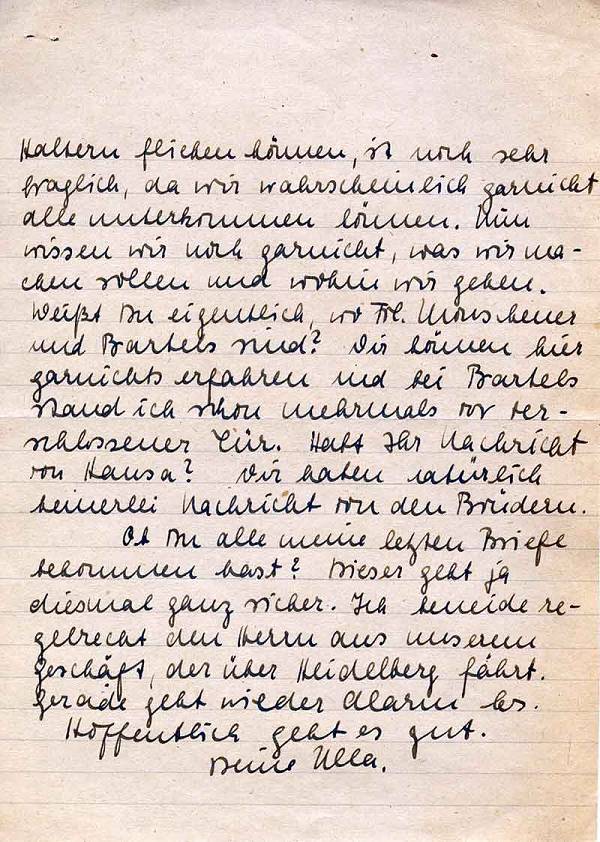 Haltern fliehen können, ist noch sehr
fraglich, da wir wahrscheinlich garnicht
alle unterkommen können. Nun
wissen wir noch garnicht, was wir ma-
chen sollen und wohin wir gehen.
Weißt Du eigentlich, wo Frl. Monscheuer
und Bartels sind? Wir können hier
garnichts erfahren und bei Bartels
stand ich schon mehrmals vor ver-
schlossener Tür. Habt Ihr Nachricht
von Hansa? Wir haben natürlich
keinerlei Nachricht von den Brüdern.
Ob Du alle meine letzten Briefe
bekommen hast? Dieser geht ja
diesmal ganz sicher. Ich beneide re-
gelrecht den Herrn aus unserem
Geschäft, der über Heidelberg fährt.
Gerade geht wieder Alarm los.
Hoffentlich geht es gut.
Deine Ulla.